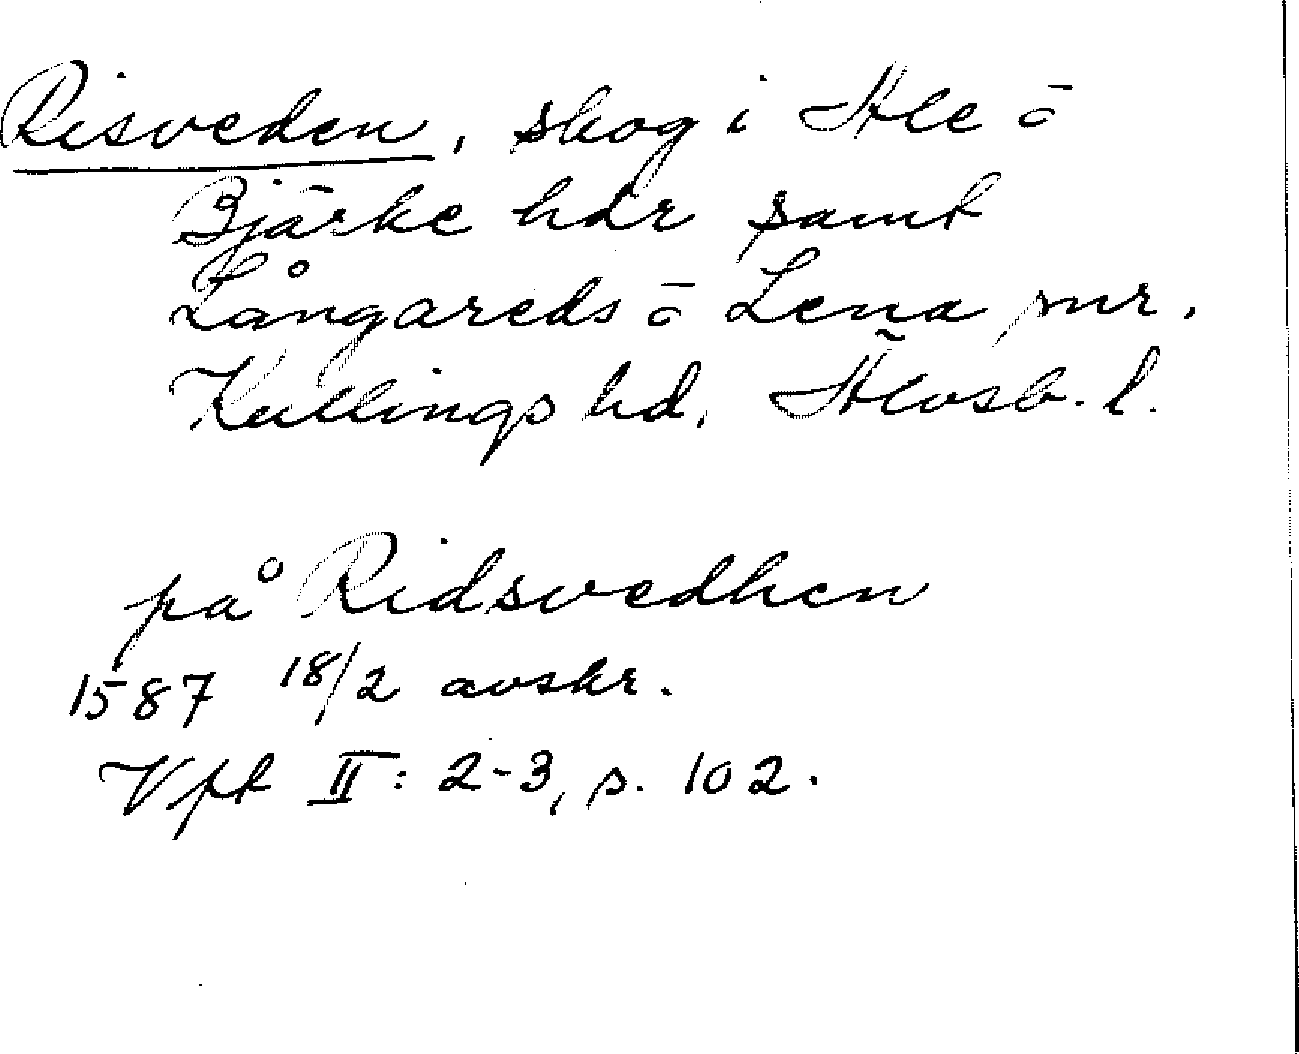 Risveden, skog i Ale o
Bjärke hdr samt
Långareds o Lena snr,
Kullings hd, Älvsb. l.
på Ridsvedhen
1587 18/2 avskr.
Vft II: 2-3, s. 102.